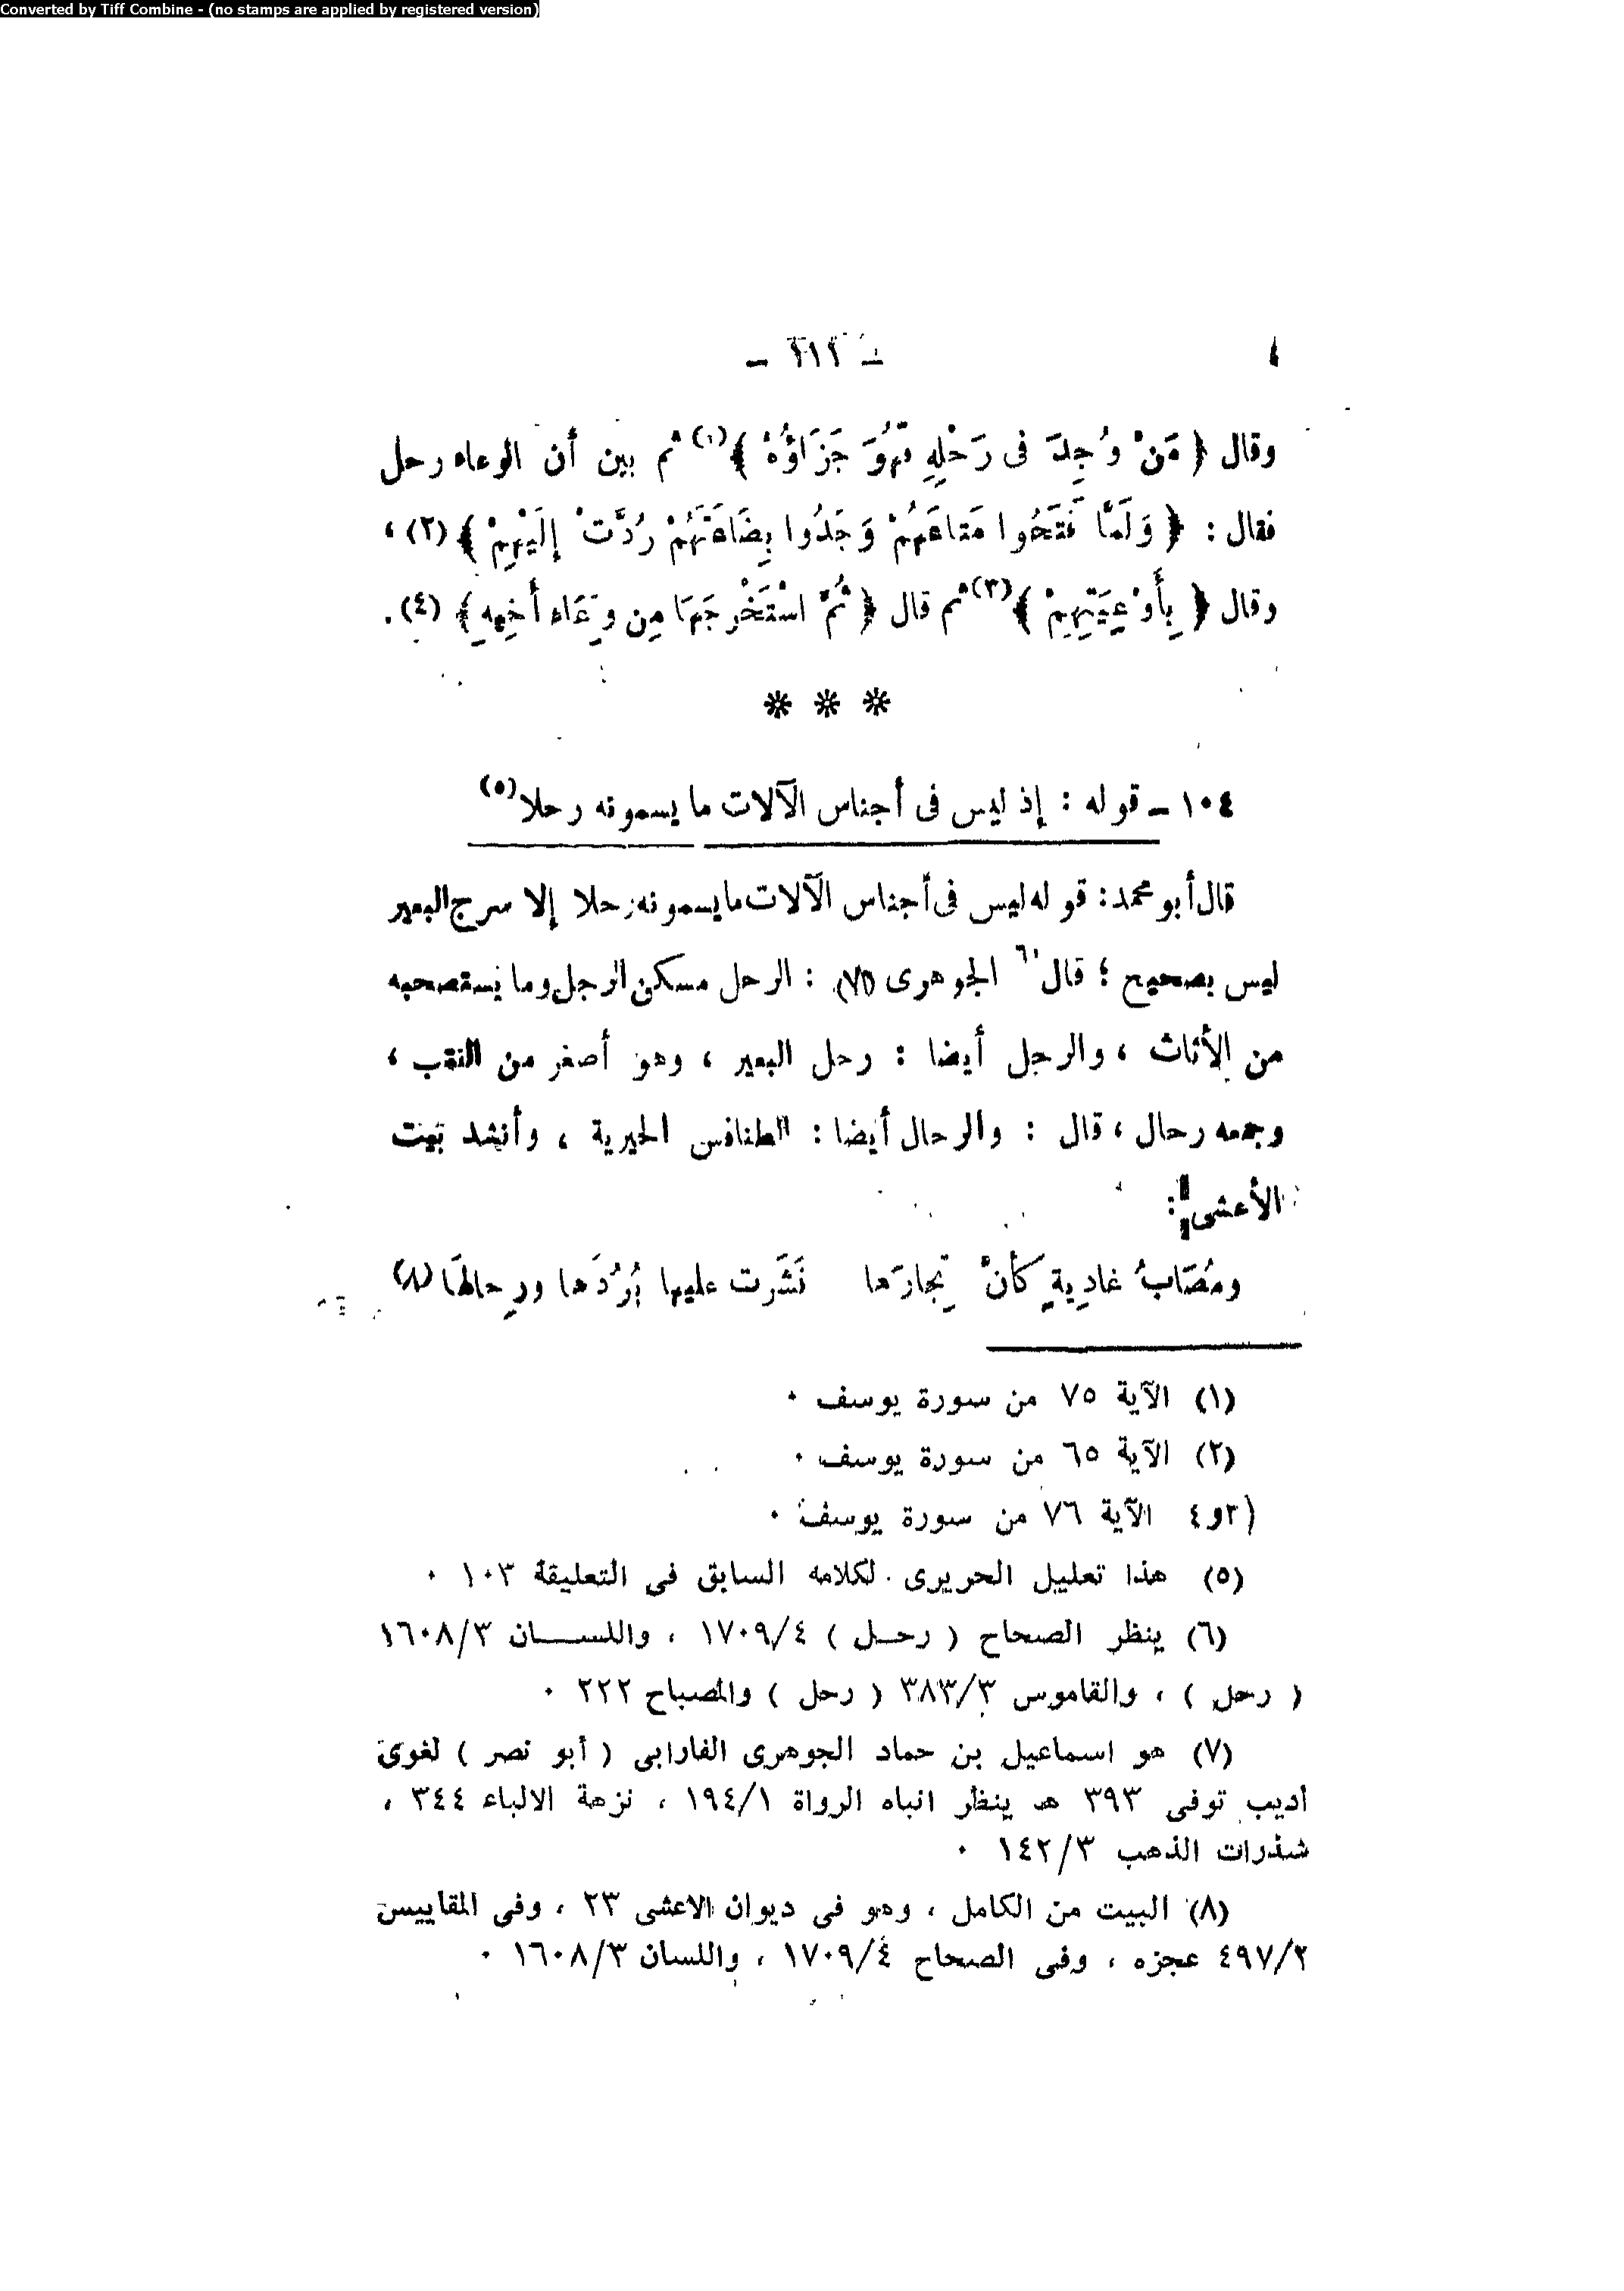 Converted by Tiff Combine - (no stamps are applied by registered version)
وقال ﴿ مَنْ وُجِدَ فى رَحْلِهِ فَهُوَ جَزَاؤُهُ ﴾(١) ثم بين أن الوعاء رحل
فقال : ﴿ وَلَمَّا فَتَحُوا مَتاعَهُمْ وَجَدُوا بِضَاعَتَهُمْ رُدَّتْ إِلَيْهِمْ ﴾ (٢) ،
وقال ﴿ بِأَوْعِيَتِهِمْ ﴾(٣) ثم قال ﴿ ثُمَّ اسْتَخْرَجَهَا مِن وِعَاءِ أَخِيهِ ﴾ (٤).
* * *
١٠٤ ــ قوله : إذ ليس فى أجناس الآلات ما يسمونه رحلا(٥)
قال أبو محمد : قوله ليس فى أجناس الآلات ما يسمونه رحلا إلا سرج البعير
ليس بصحيح ؛ قال٦ الجوهرى (٧) : الرحل مسكن الرجل وما يستصحبه
من الأثاث ، والرحل أيضا : رحل البعير ، وهو أصغر من القتب ،
وجمعه رحال ، قال : والرحال أيضا : الطنافس الحيرية ، وأنشد بيت
الأعشى :
ومُصَابُ غادِيةٍ كأنْ تِجارَها نَشَرَت عليها بُرُدَها ورِحالهَا (٨)
(١) الآية ٧٥ من سورة يوسف ٠
(٢) الآية ٦٥ من سورة يوسف ٠
(٣و٤ الآية ٧٦ من سورة يوسف ٠
(٥) هذا تعليل الحريرى لكلامه السابق فى التعليقة ١٠٣ ٠
(٦) ينظر الصحاح ( رحل ) ١٧٠٩/٤ ، واللسان ١٦٠٨/٣
( رحل ) ، والقاموس ٣٨٣/٣ ( رحل ) والمصباح ٢٢٢ ٠
(٧) هو اسماعيل بن حماد الجوهرى الفارابى ( أبو نصر ) لغوى
أديب توفى ٣٩٣ هـ ينظر انباه الرواة ١٩٤/١ ، نزهة الالباء ٣٤٤ ،
شذرات الذهب ١٤٢/٣ ٠
(٨) البيت من الكامل ، وهو فى ديوان الاعشى ٢٣ ، وفى المقاييس
٤٩٧/٢ عجزه ، وفى الصحاح ١٧٠٩/٤ ، واللسان ١٦٠٨/٣ ٠